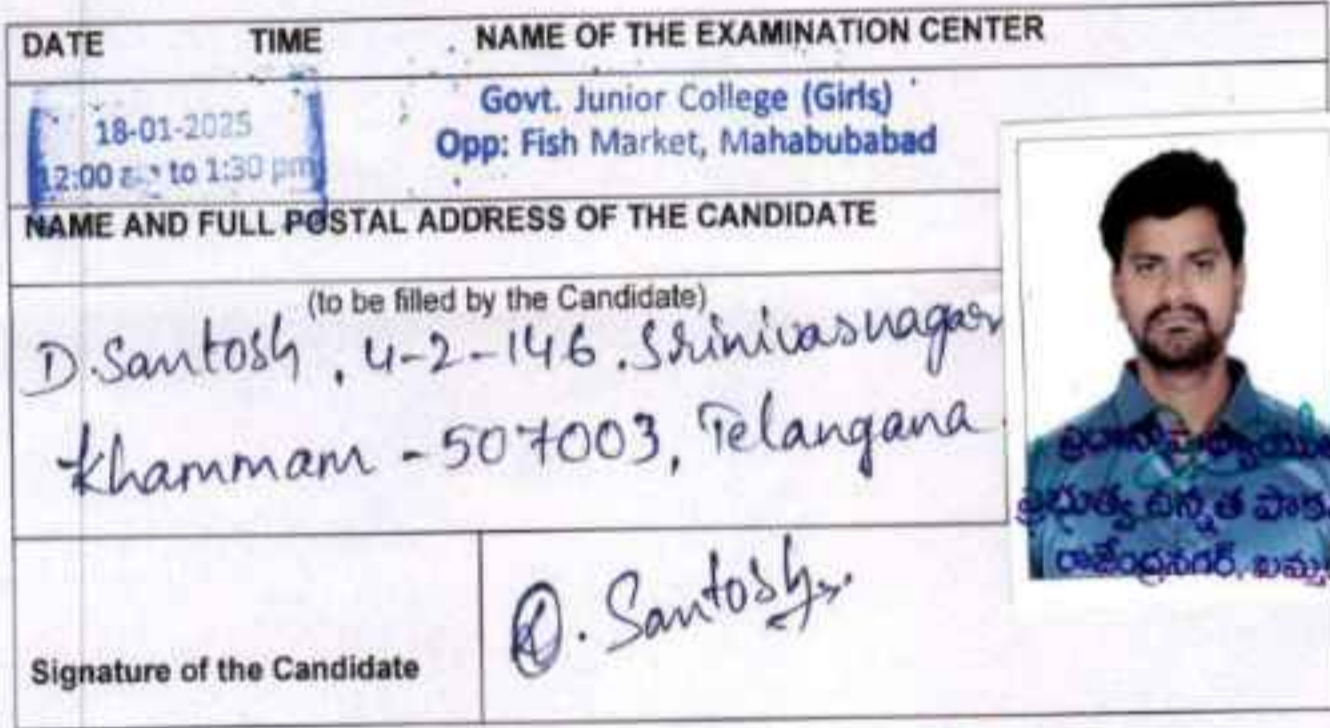 DATE TIME NAME OF THE EXAMINATION CENTER
18-01-2025
12:00 to 1:30 pm
Govt. Junior College (Girls)
Opp: Fish Market, Mahabubabad
NAME AND FULL POSTAL ADDRESS OF THE CANDIDATE
(to be filled by the Candidate)
D.Santosh, 4-2-146. Srinivasnagar
Khammam - 507003, Telangana
ప్రభుత్వ ఉన్నత
రాజేంద్రనగర్,
Signature of the Candidate
D. Santosh